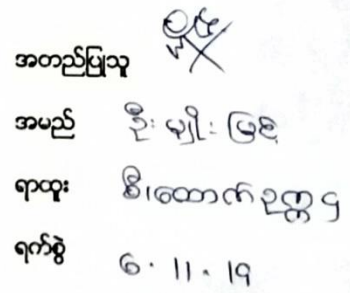 အတည်ပြုသူ
အမည် ဦး မျိုး မြင့်
ရာထူး စီ၊ထောက်ဥက္ကဌ
ရက်စွဲ ၆.၁၁.၁၅